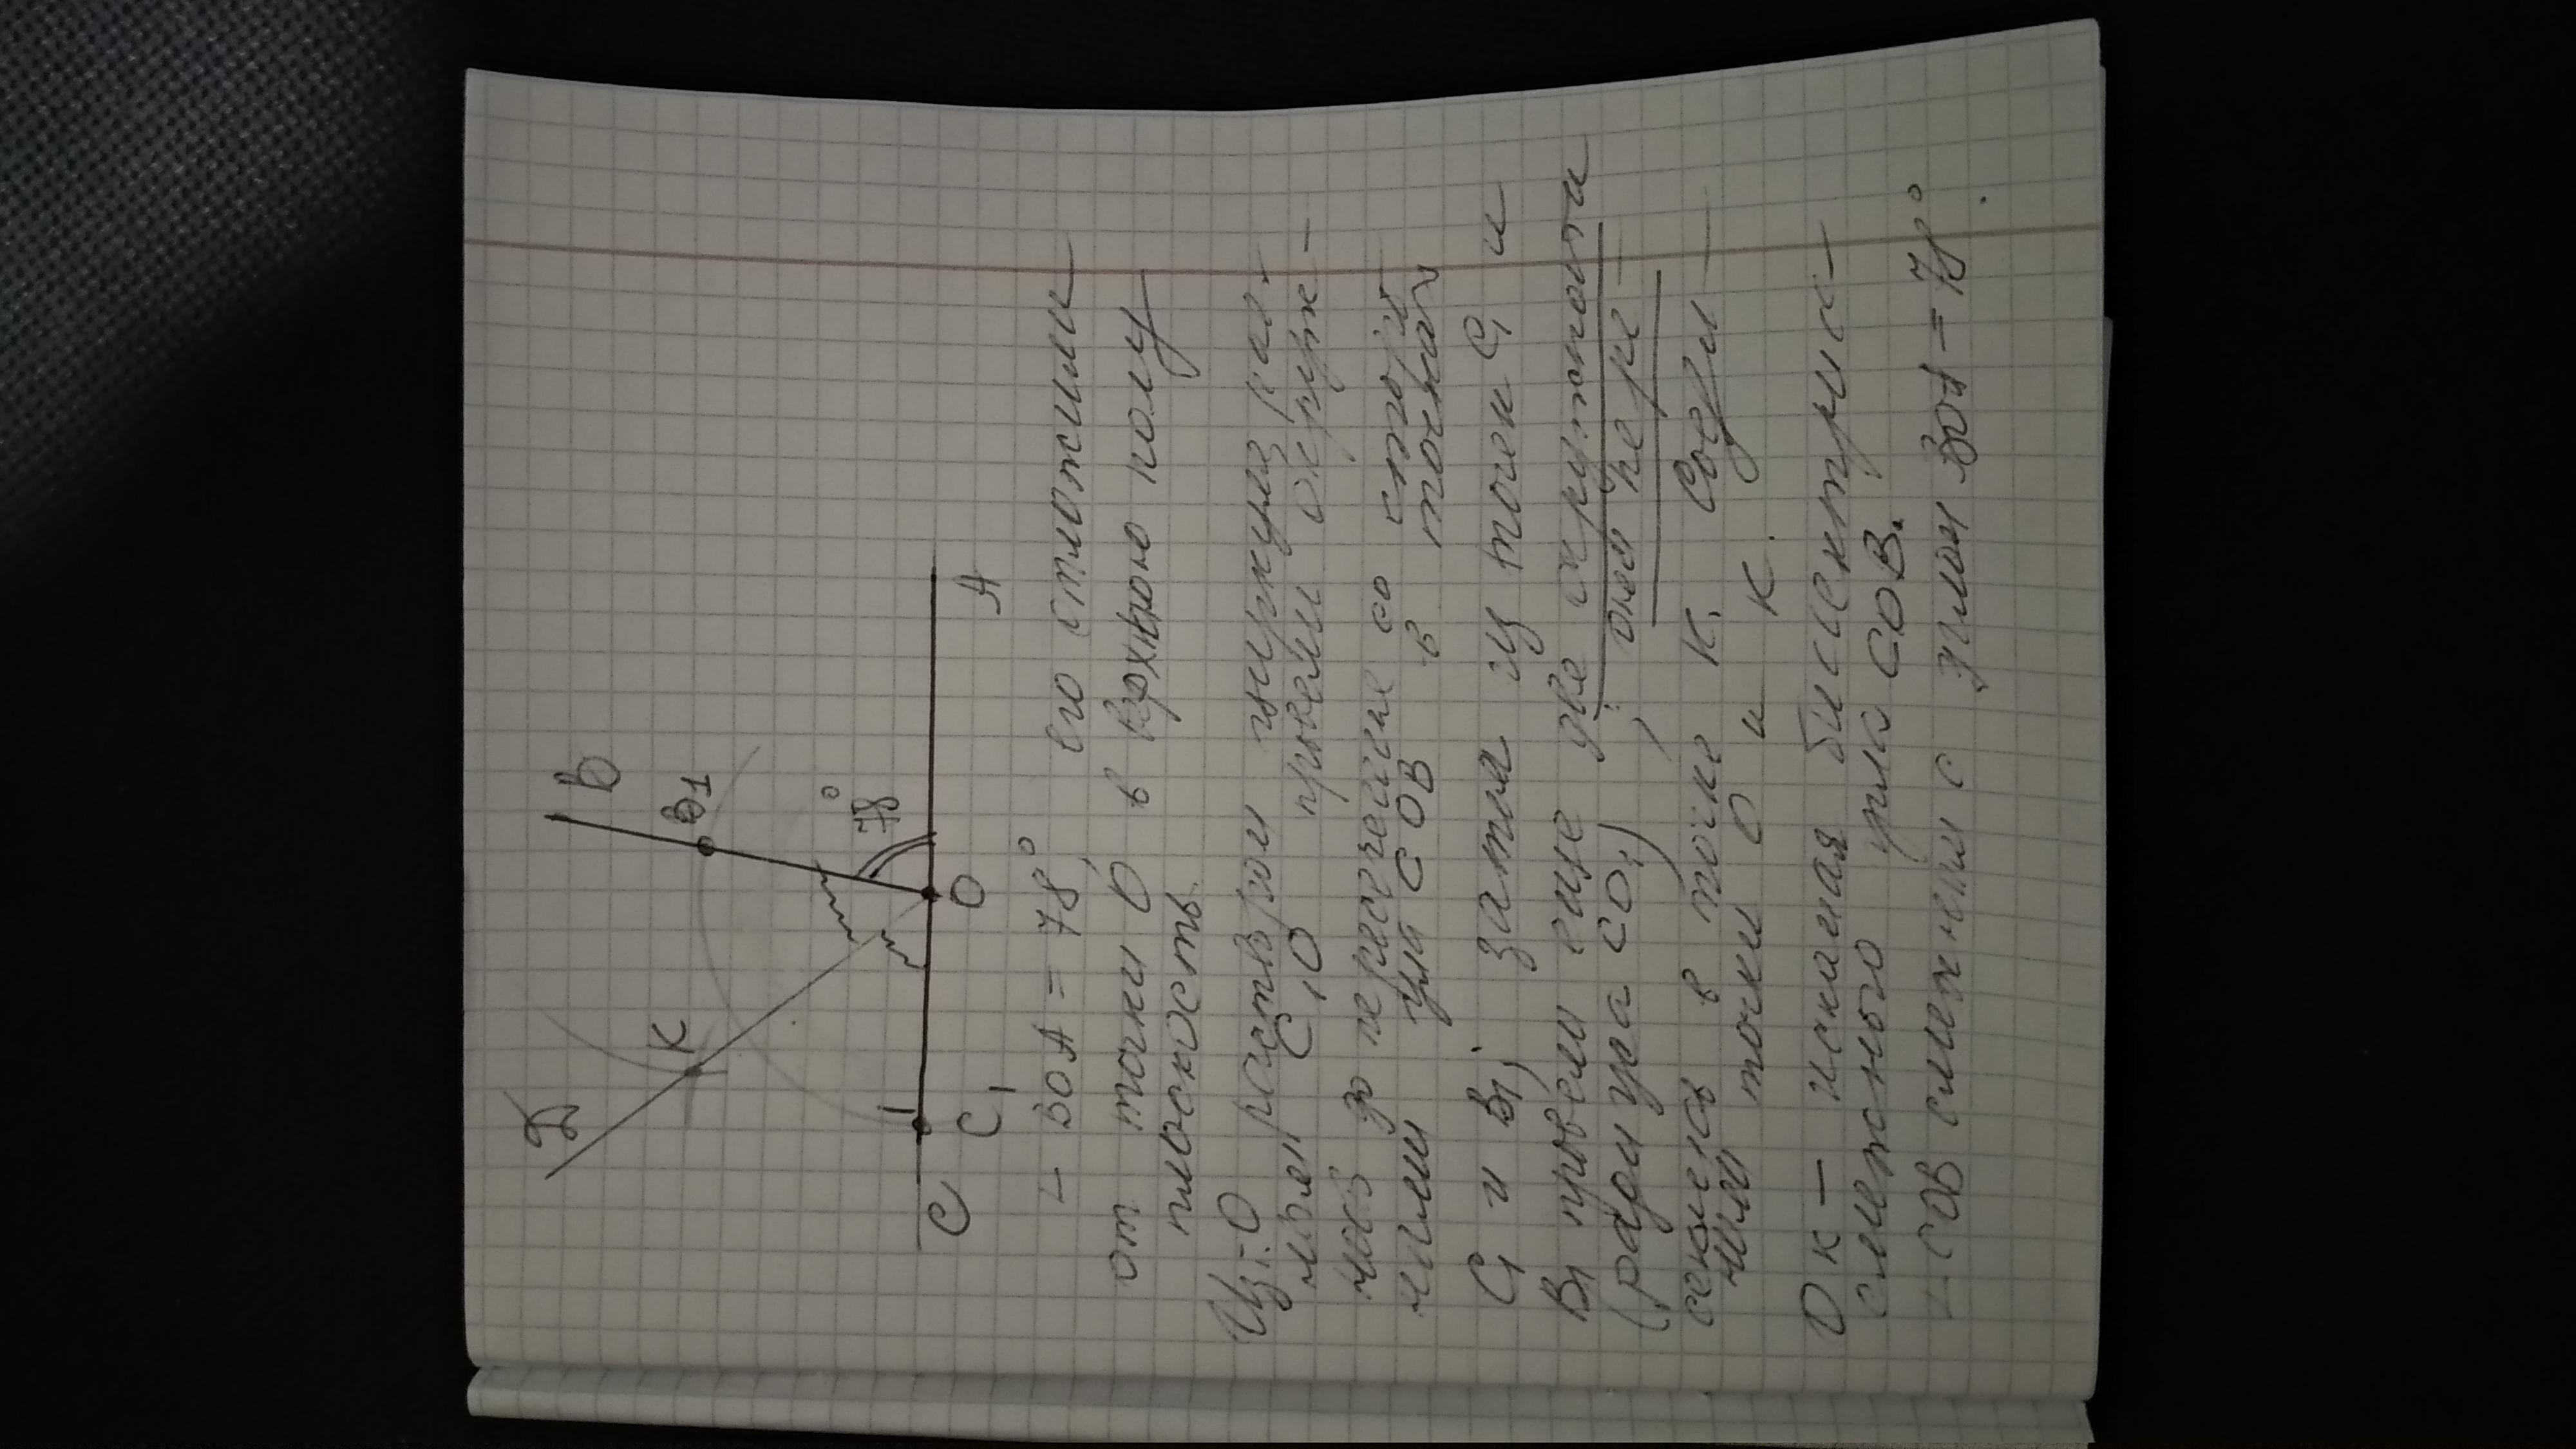 D
B
K
B1
78°
C
C1
O
A
∟ BOA = 78°, его отложили
от точки О в верхнюю полу
плоскость.
Из O раствором циркуля рав-
ным C1O провели окруж-
ность до пересечения со сторо
нами угла COB в точках
C1 и B1; затем из точек C1 и
B1 провели еще две окружности
(радиуса CO1), они пере-
секлись в точке K. Соеди-
нили точки O и K.
OK - искомая биссектриса
смежного угла COB.
∟ COB смежный с углом BOA = 78°.